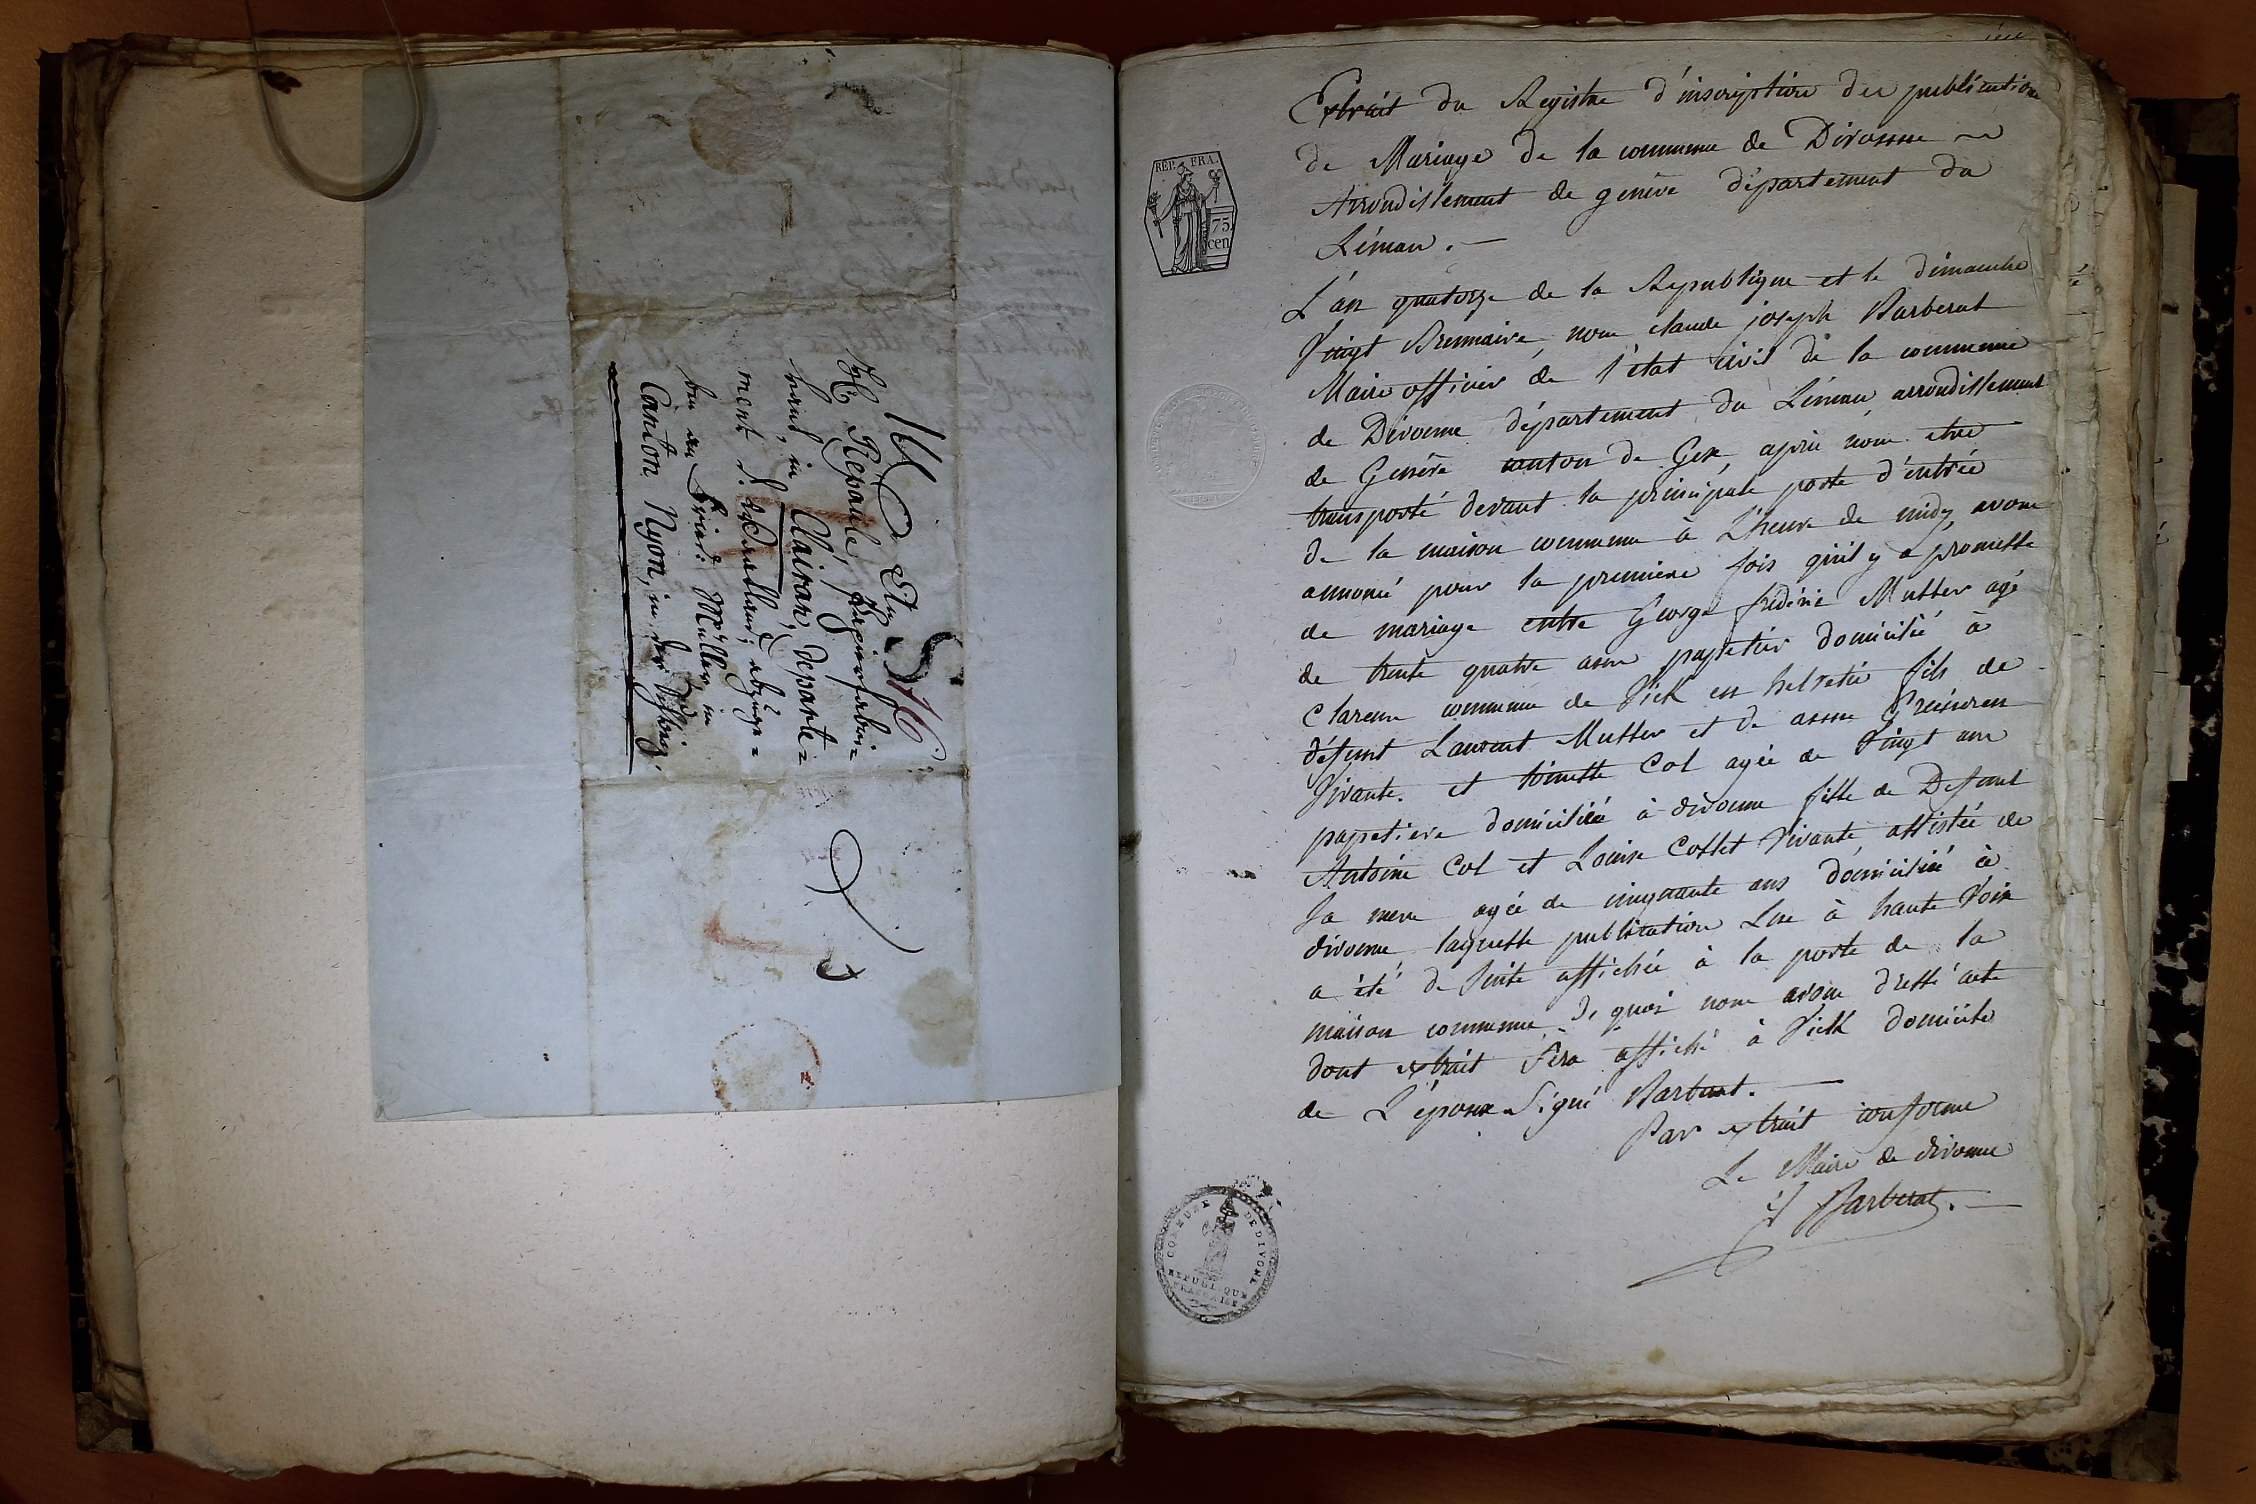 H. Repaule, Papierfabri=
kant, in Clairan, departe=
ment
Canton Nyon, in der
Extrait du Registre d'inscription des publications
de Mariage de la commune de Divonne
Arrondissement de genève département du
Léman.
REP. FRA.
75.
cen.
L'an quatorze de la Republique et le dimanche
Vingt Brumaire, nous claude joseph Barberat
Maire officier de l'état civil de la commune
de Divonne département du Léman arrondissement
de Genève canton de Gex, après nous etre
transporté devant la principale porte d'entrée
de la maison commune à L'heure de midy, avons
annoncé pour la premiere fois qu'il y a promesse
de mariage entre George frédéric Muller agé
de trente quatre ans papetier domicilié à
Clarens commune de Vick en helvetie fils de
défunt Laurent Muller et de anne
Vivante. et Col agée de Vingt ans
papetiere domiciliée à divonne fille de Defunt
Antoine Col et Louise Collet Vivante, assistée de
Sa mere agée de cinquante ans domiciliée à
divonne, laquelle publication Lue à haute Voix
a été de Suite affichée à la porte de la
maison commune, De quoi nous avons dressé acte
dont extrait Sera affiché à Vick domicile
de L'époux Signé Barberat.
Par extrait conforme
Le Maire de divonne
Barberat.
COMMUNE DE DIVONNE
REPUBLIQUE
FRANCAISE